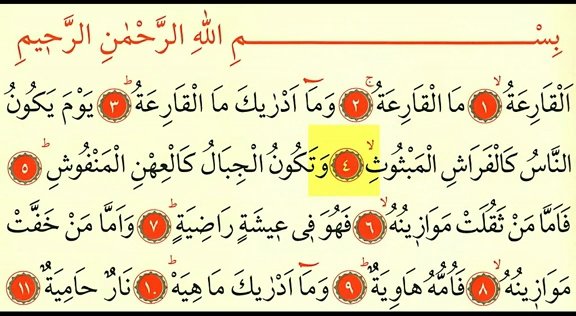 بِسْمِ اللّٰهِ الرَّحْمٰنِ الرَّح۪يمِ
اَلْقَارِعَةُۙ ١ مَا الْقَارِعَةُۚ ٢ وَمَٓا اَدْرٰيكَ مَا الْقَارِعَةُۜ ٣ يَوْمَ يَكُونُ
النَّاسُ كَالْفَرَاشِ الْمَبْثُوثِۙ ٤ وَتَكُونُ الْجِبَالُ كَالْعِهْنِ الْمَنْفُوشِۜ ٥
فَاَمَّا مَنْ ثَقُلَتْ مَوَاز۪ينُهُۙ ٦ فَهُوَ ف۪ي ع۪يشَةٍ رَاضِيَةٍۜ ٧ وَاَمَّا مَنْ خَفَّتْ
مَوَاز۪ينُهُۙ ٨ فَاُمُّهُ هَاوِيَةٌۜ ٩ وَمَٓا اَدْرٰيكَ مَا هِيَهْۜ ١٠ نَارٌ حَامِيَةٌ ١١